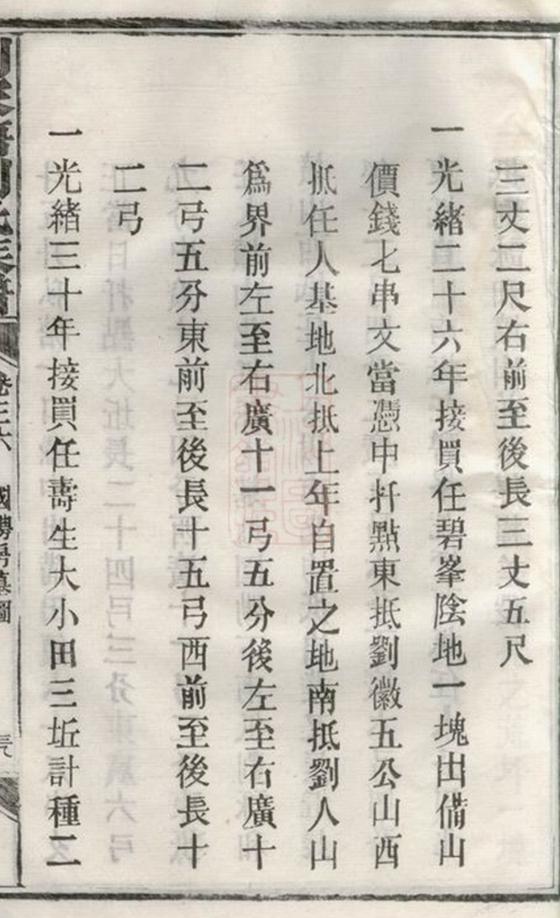 三丈二尺右前至後長三丈五尺
一光緒二十六年接買任碧峯陰地一塊出備山
價錢七串文當憑中扦點東抵劉徽五公山西
抵任人基地北抵上年自置之地南抵劉人山
爲界前左至右廣十一弓五分後左至右廣十
二弓五分東前至後長十五弓西前至後長十
二弓
一光緒三十年接買任壽生大小田三坵計種二
卷三六
國勝房墓圖